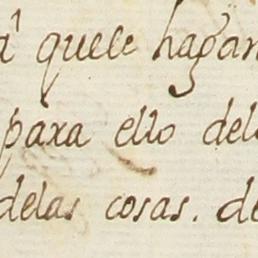 quele hagan
para ello del
delas cosas. de